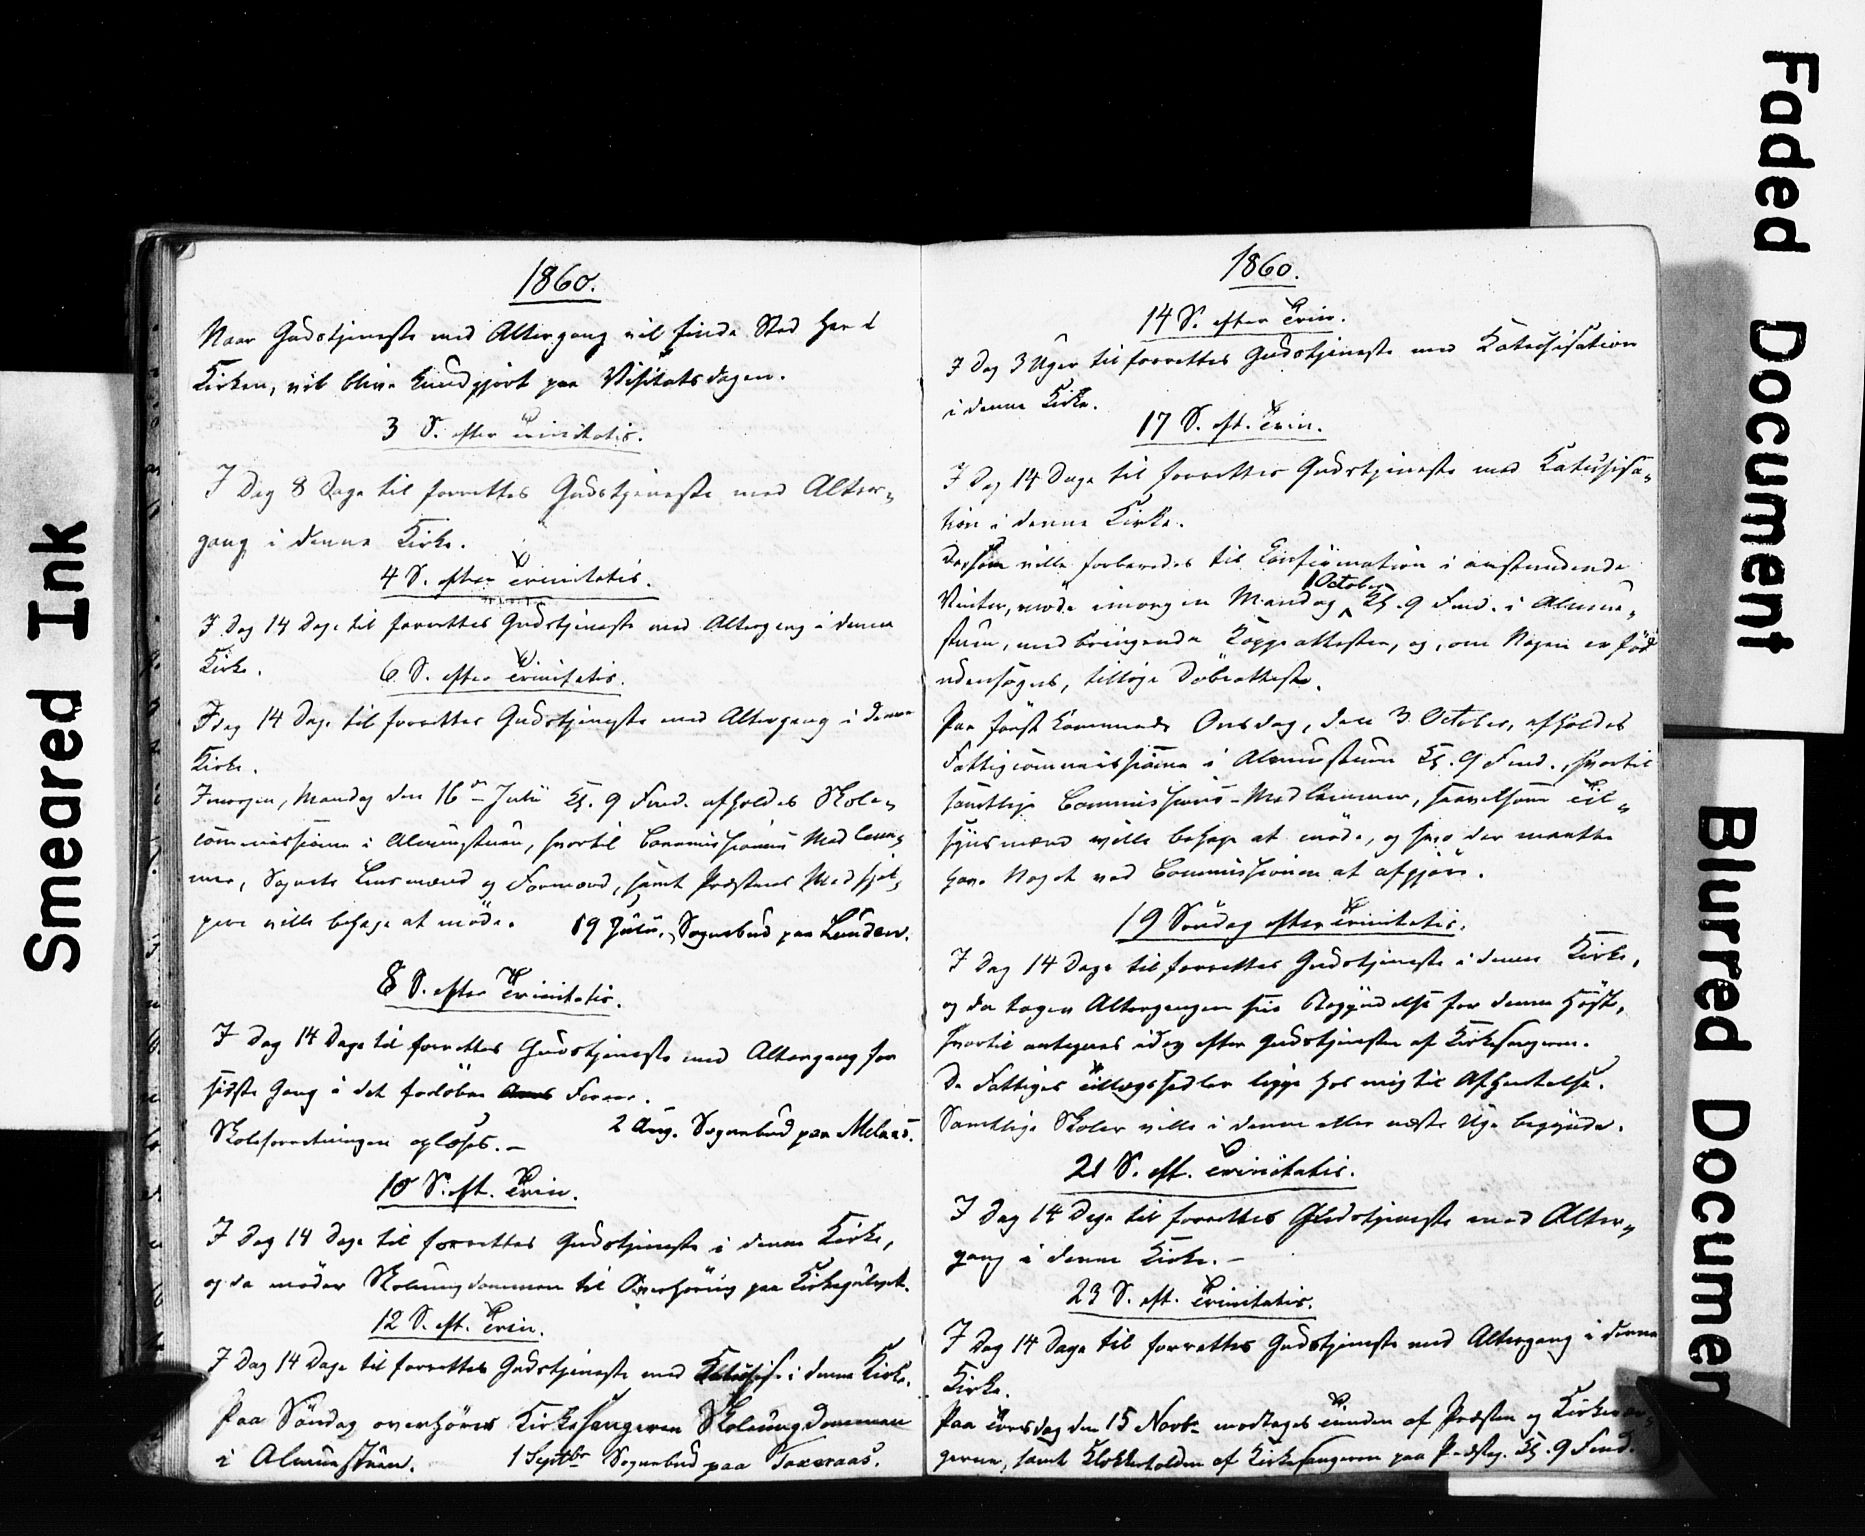 1860.
Naar Gudstjeneste med Altergang vil finde Sted her i
Kirken, vil blive kundgjort paa Visitatsdagen.
3 S. efter Trinitatis.
I Dag 8 Dage til forrettes Gudstjeneste med Alter-
gang i denne Kirke.
4 S. efter Trinitatis.
I Dag 14 Dage til forrettes Gudstjeneste med Altergang i denne
Kirke.
6 S. efter Trinitatis.
I dag 14 Dage til forrettes Gudstjeneste med Altergang i denne
Kirke.
Imorgen, Mandag den 16de Julii Kl. 9 Fmd. afholdes Skole-
commissionen i Almuestuen, hvortil Commissionens Medlem-
mer, Sognets Lensmænd og Formænd, samt Præstens Medhjæl-
pere ville behage at møde.
19 Julii, Sognebud paa Lunden.
8 S. efter Trinitatis.
I Dag 14 Dage til forrettes Gudstjeneste med Altergang for
sidste Gang i det forløbne Semer.
Skoleforretningen oplæses. –
2 Aug. Sognebud paa Melaas.
10 S. eft. Trin.
I Dag 14 Dage til forrettes Gudstjeneste i denne Kirke,
og da møder Skoleungdommen til Overhøring paa Kirkegulvet.
12 S. eft. Trin.
I Dag 14 Dage til forrettes Gudstjeneste med Katechise i denne Kirke.
Paa Søndag overhøres Kirkesangeren Skoleungdommen
i Almuestuen.
1 Septbr Sognebud paa Taxeraas.
1860.
14 S. efter Trin.
I Dag 3 Uger til forrettes Gudstjeneste med Katechisation
i denne Kirke.
17 S. eft. Trin.
I Dag 14 Dage til forrettes Gudstjeneste med Katechisa-
tion i denne Kirke.
De, som ville forberedes til Confirmation i anstundende
Vinter, møde imorgen Mandag 1 October Kl. 9 Fmd. i Almue-
stuen, medbringende Koppeattester, og, om Nogen er fød
udensogns, tillige Døbeattest.
Paa førstkommende Onsdag, den 3 October, afholdes
Fattigcommissionen i Almuestuen Kl. 9 Fmd., hvortil
samtlige Commissions-Medlemmer, saavelsom Til-
synsmænd ville behage at møde, og hvo der maatte
have Noget ved Commissionen at afgjøre.
19 Søndag efter Trinitatis.
I Dag 14 Dage til forrettes Gudstjeneste i denne Kirke,
og da tager Altergangen sin Begyndelse for denne Høst,
hvortil antegnes idag efter Gudstjenesten af Kirkesangeren.
De Fattiges Tillægssedler ligge hos mig til Afhentelse.
Samtlige Skoler ville i denne eller næste Uge begynde.
21 S. eft. Trinitatis.
I Dag 14 Dage til forrettes Gudstjeneste med Alter-
gang i denne Kirke. –
23 S. eft. Trinitatis.
I Dag 14 Dage til forrettes Gudstjeneste med Altergang i denne
Kirke.
Paa Torsdag den 15 Novbr modtages Tienden af Præsten og Kirkevær-
gerne, samt Klokkertolden af Kirkesangeren paa Præsteg. Kl. 9 Fmd.
Smeared Ink
Faded Document
Blurred Documen